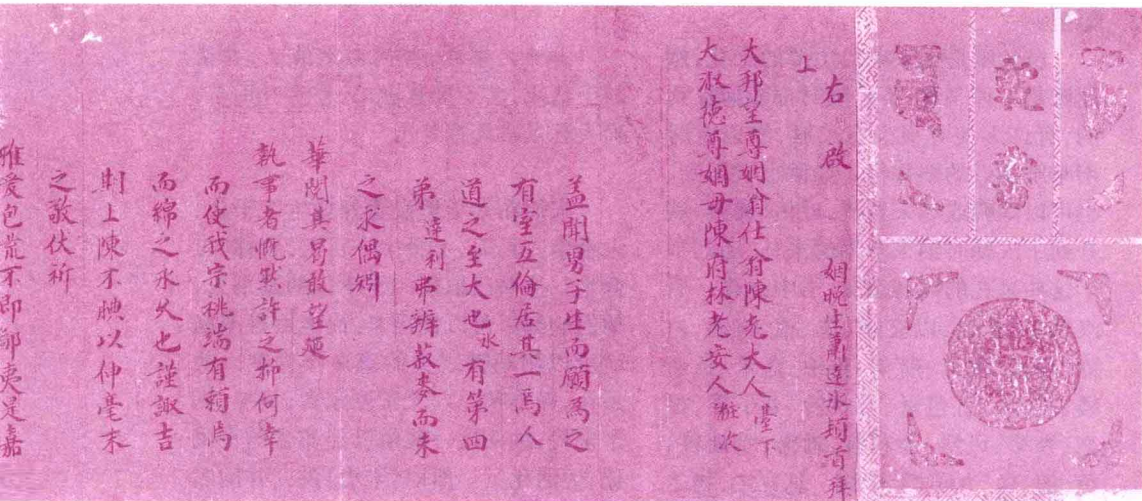 乾書
右啟 姻晚生蕭達氷頓首拜
上
大邦望尊姻翁仕翁陳老大人臺下
大淑德尊姻母陳府林老安人粧次
蓋聞男子生而願為之
有室五倫居其一焉人
道之至大也氷有第四
弟達利弗辨菽麥而未
之求偶矧
華閥其曷敢望廼
執事者慨然許之抑何幸
而使我宗祧端有賴焉
而綿之永久也謹諏吉
制上陳不腆以伸毫末
之敬伏祈
雅愛包荒不即鄙夷是嘉